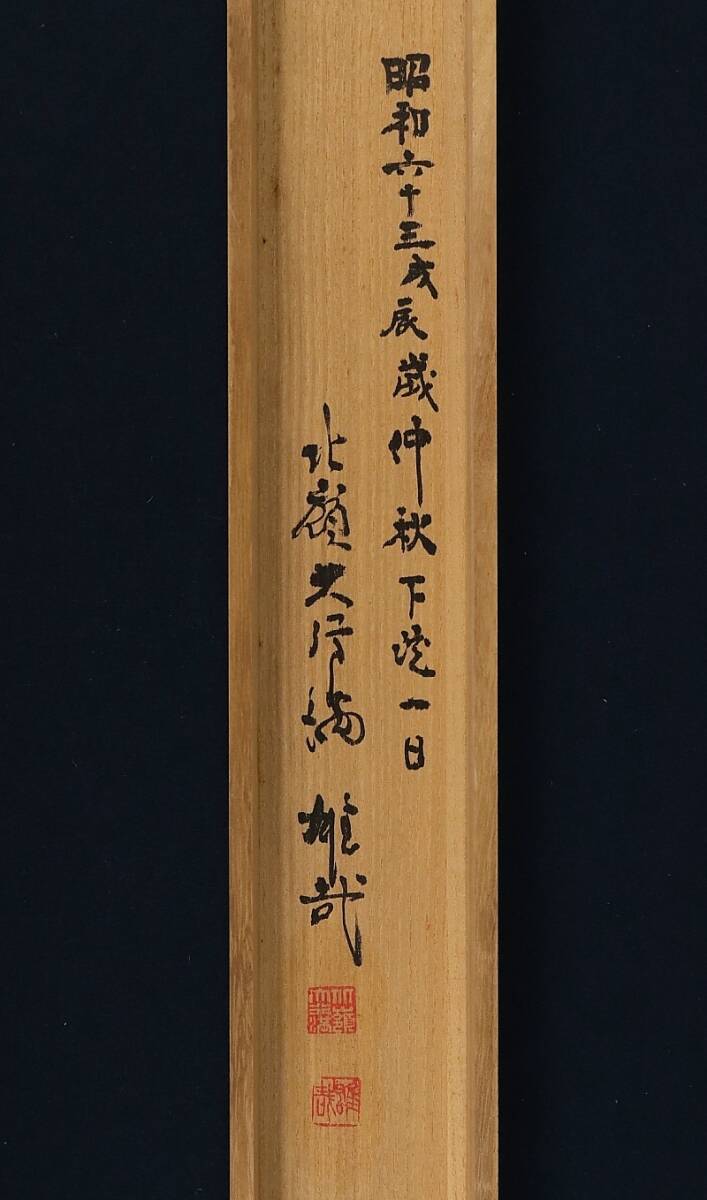 昭和六十三戊辰歳仲秋下浣一日
北嶺大行満 雄哉